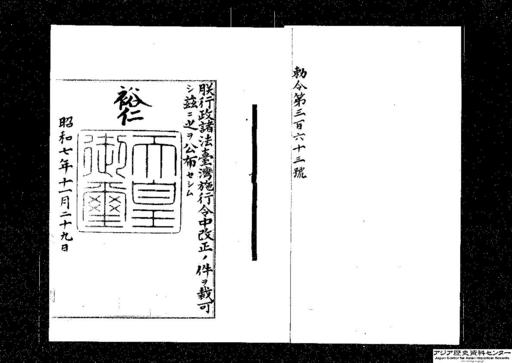 勅令第三百六十三號
朕行政諸法臺灣施行令中改正ノ件ヲ裁可
シ茲ニ之ヲ公布セシム
裕仁
天皇
御璽
昭和七年十一月二十九日
アジア歴史資料センター
Japan Center for Asian Historical Records